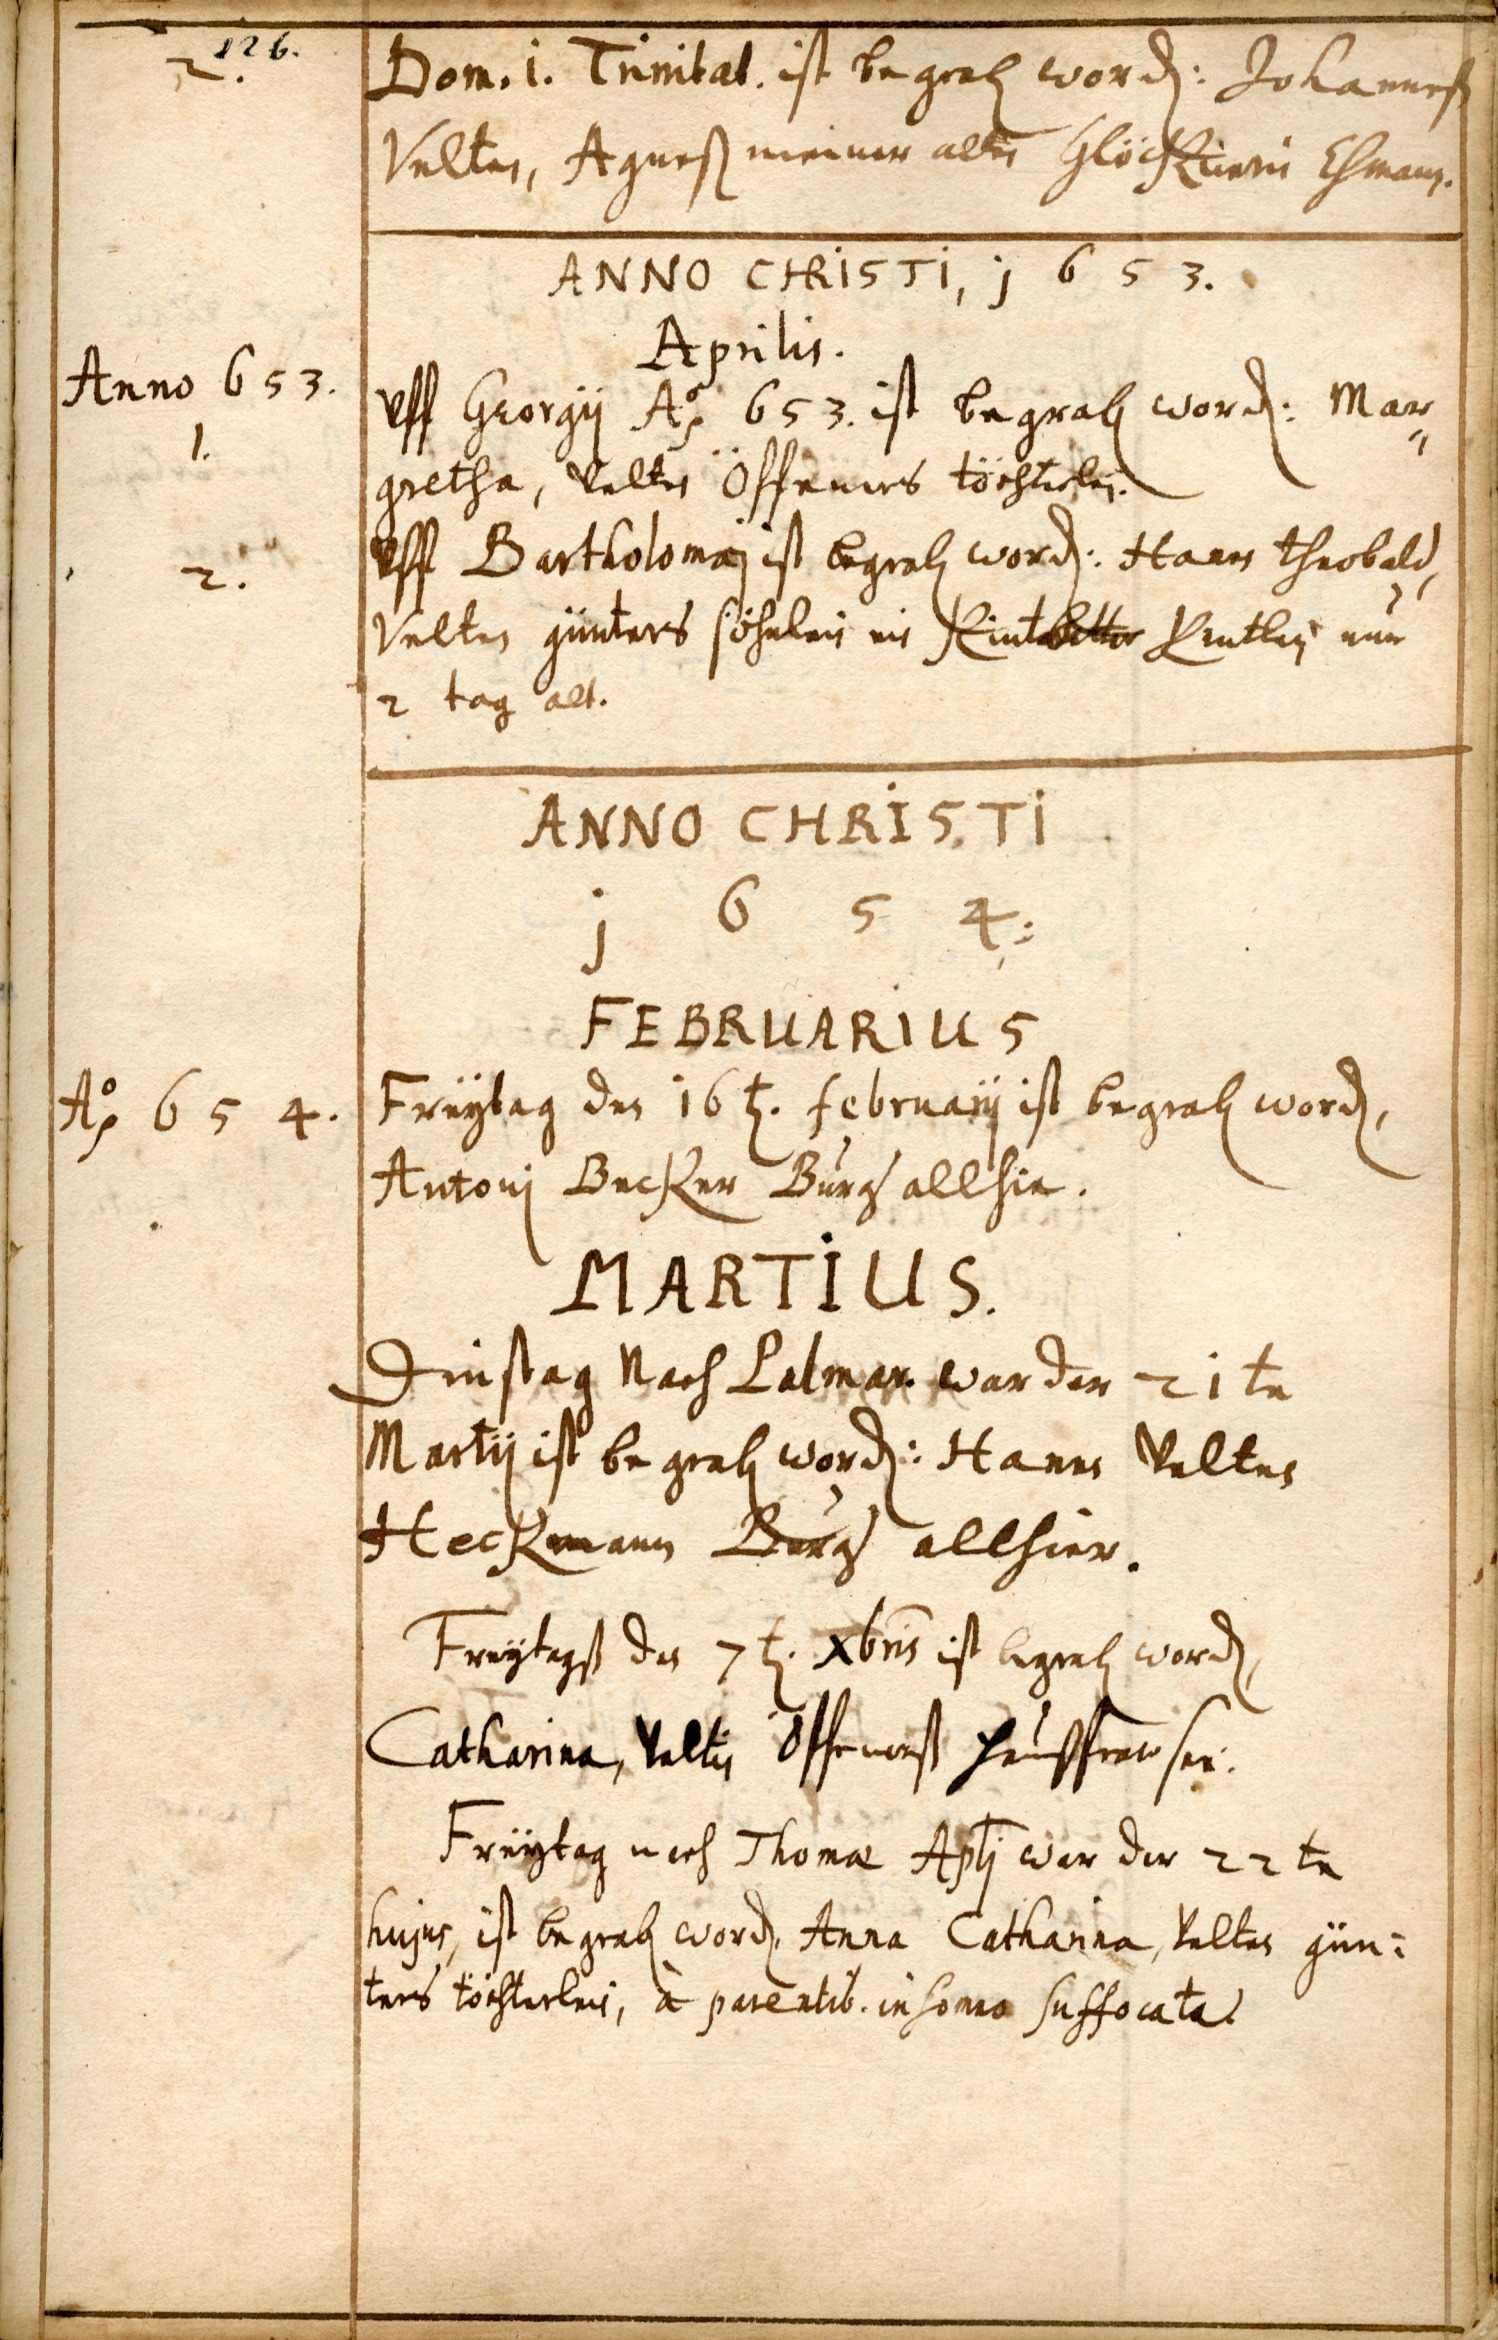 126.
2.
Dom. 1. Trinitat. ist begrab word: Johanneß
Velten, Agneß meiner alten Glöcknerin Ehman.
ANNO CHRISTI, j 6 5 3.
Aprilis.
Anno 653.
1.
Uff Georgij Aō 653. ist begrab word: Mar„
gretha, Velten Öffeners töchterlein.
2.
Uff Bartholomaj ist begrab word: Hans Theobald,
Velten günters söhnlein ein Kintbetter Kintlein nur
2 tag alt.
ANNO CHRISTI
j 6 5 4:
FEBRUARIUS
Aō 6 5 4.
Freÿtag den 16 t. februarij ist begrab word,
Antonj Becker Burg allhie.
MARTIUS.
Dinstag Nach Palmar. war der 21 te
Martij ist begrab word: Hans Velten
Heckmann Burg allhier.
Freÿtagß den 7 t. Xbris ist begrab word,
Catharina, Velten Öffenerß Haußfraw
Freÿtag nach Thomae Aptj war der 22 te
hujus, ist begrab word, Anna Catharina, Velten gün:
ters töchterlein, à parentib. in somno suffocata.